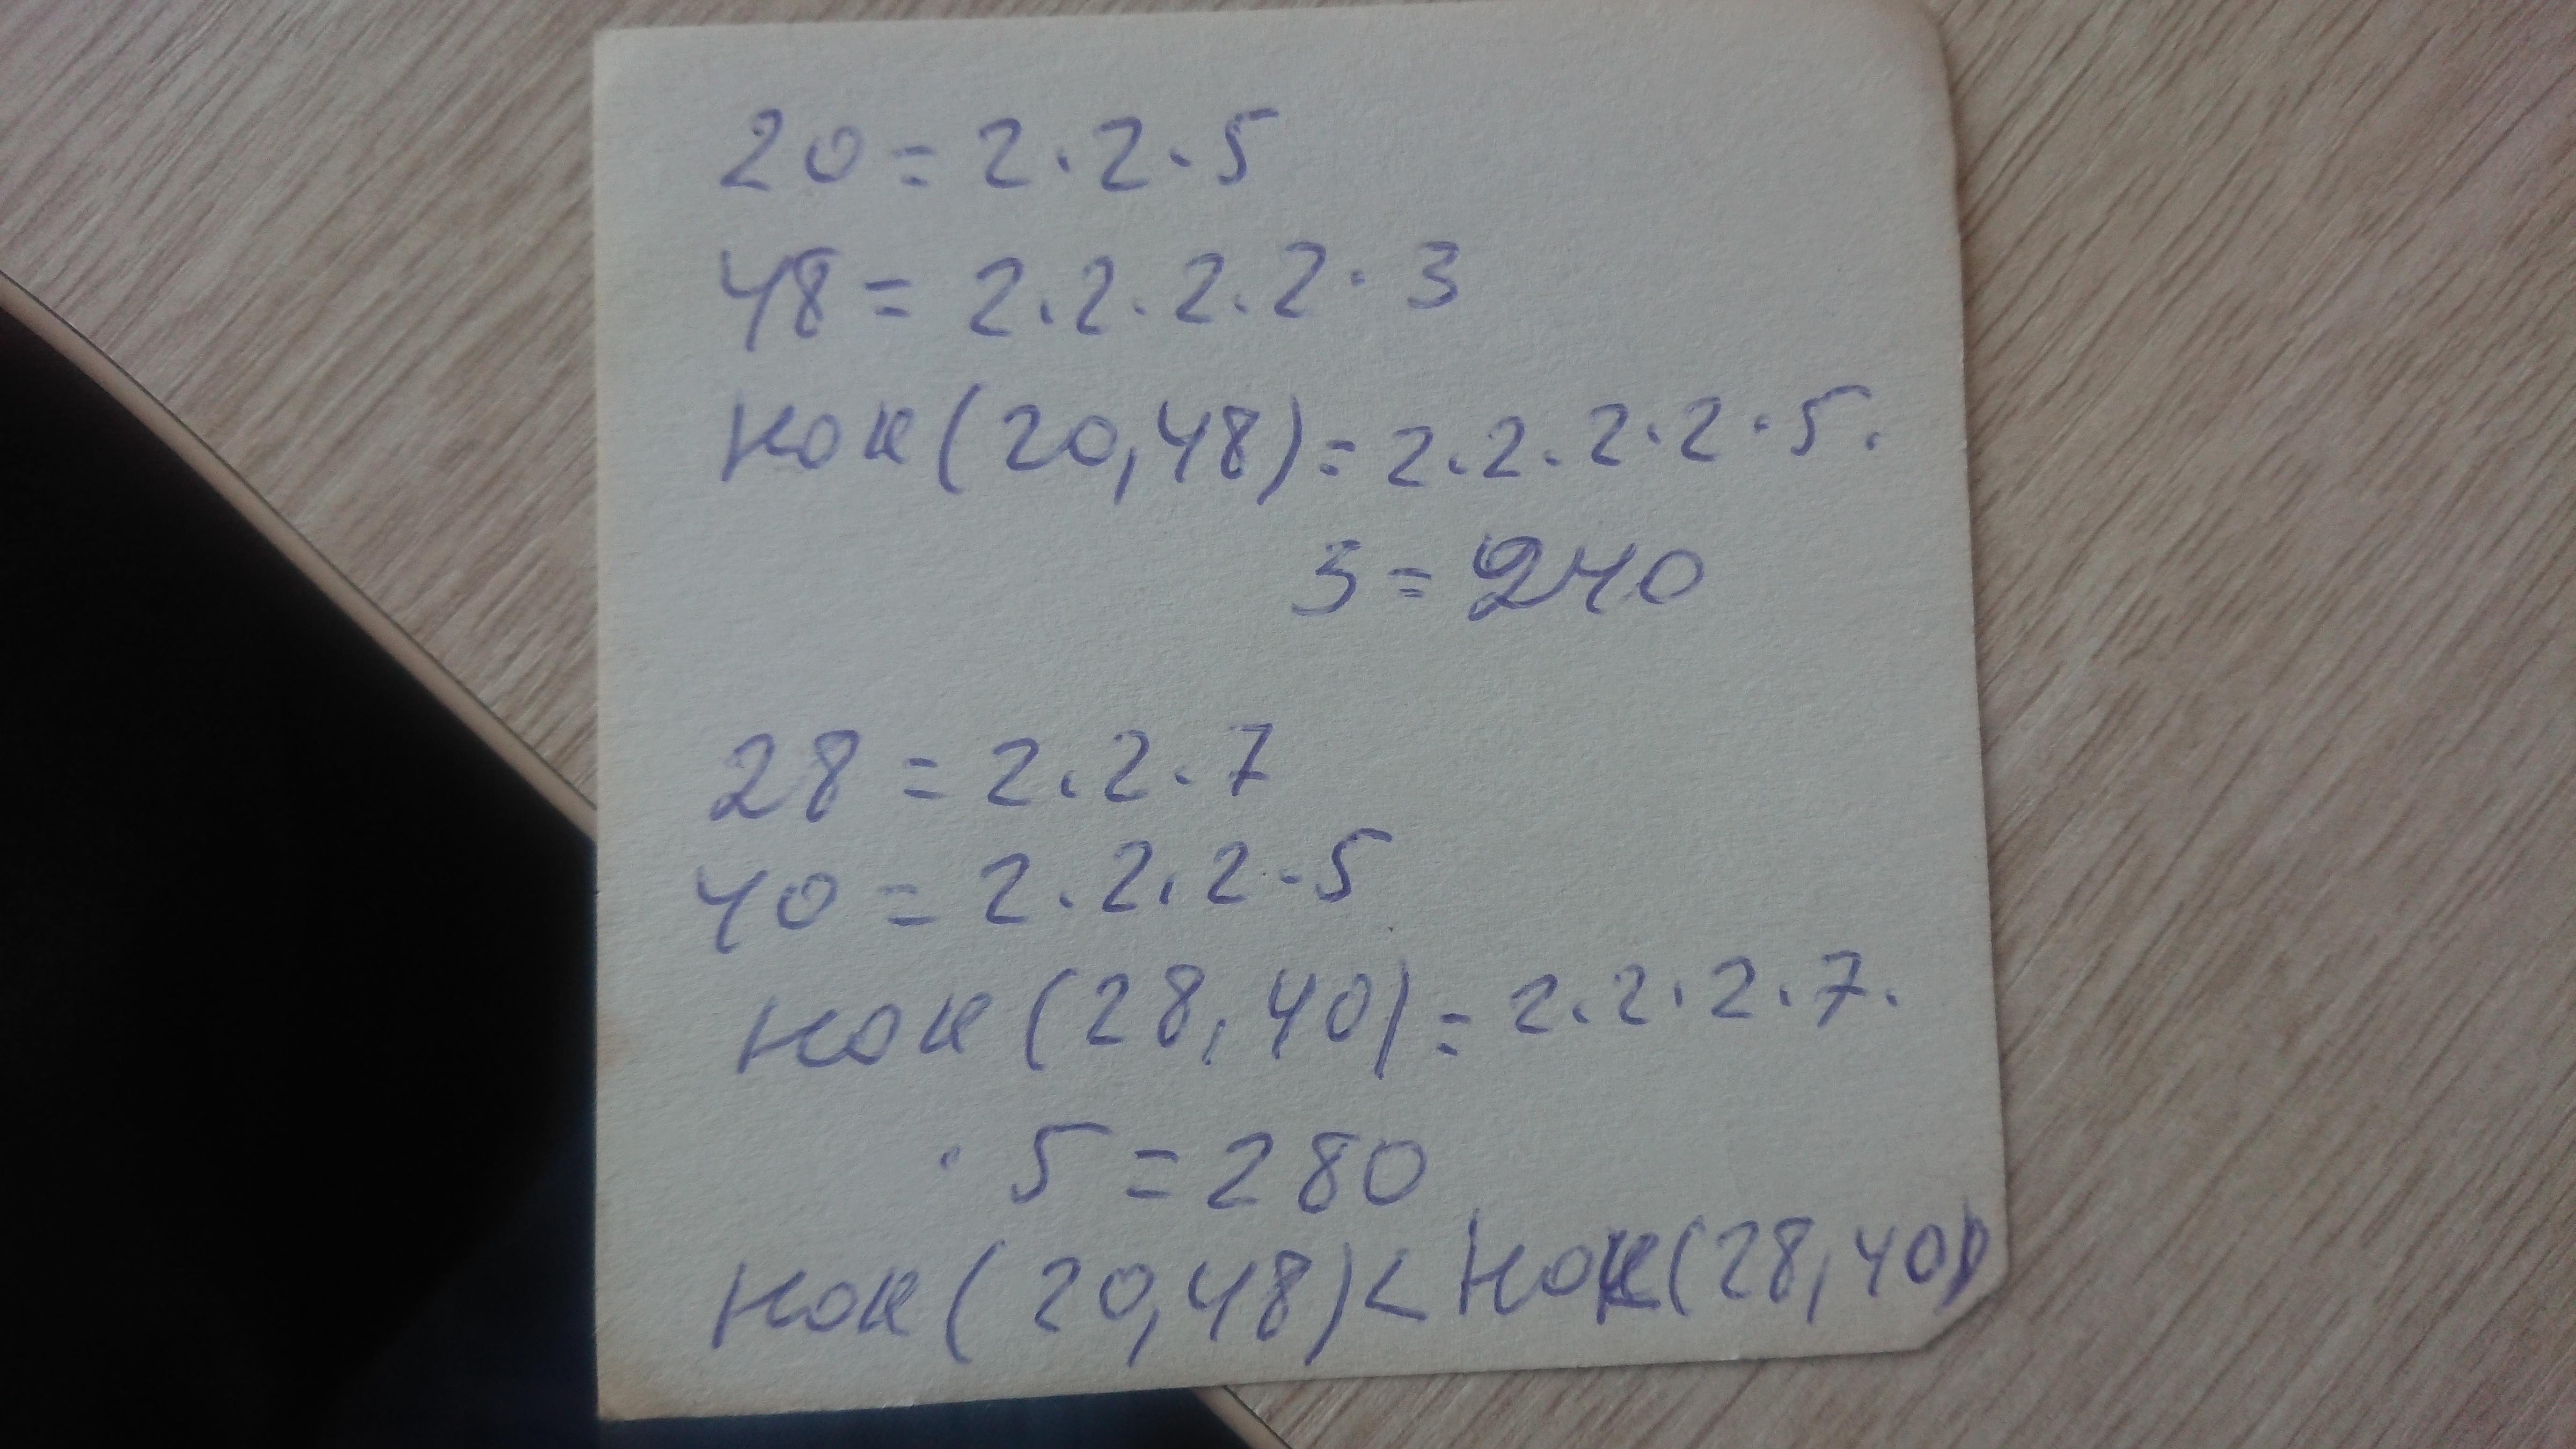 20 = 2 · 2 · 5
48 = 2 · 2 · 2 · 2 · 3
нок (20, 48) = 2 · 2 · 2 · 2 · 5 ·
3 = 240
28 = 2 · 2 · 7
40 = 2 · 2 · 2 · 5
нок (28, 40) = 2 · 2 · 2 · 7 ·
· 5 = 280
нок (20, 48) < нок (28, 40)